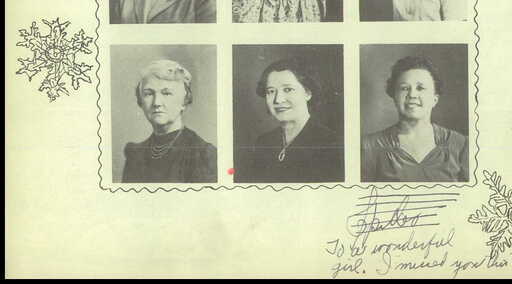 To a wonderful
girl. I missed you this